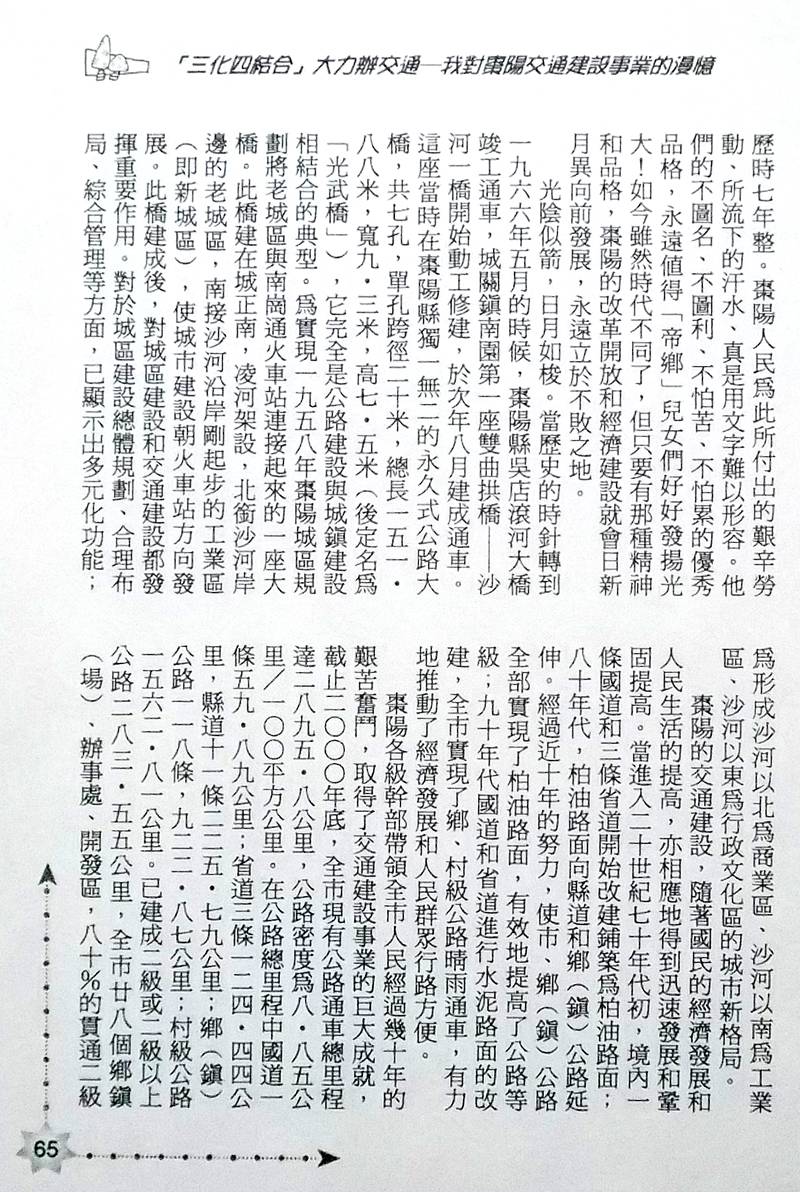 「三化四結合」大力辦交通—我對棗陽交通建設事業的漫憶
歷時七年整。棗陽人民爲此所付出的艱辛勞
動、所流下的汗水、真是用文字難以形容。他
們的不圖名、不圖利、不怕苦、不怕累的優秀
品格，永遠值得「帝鄉」兒女們好好發揚光
大！如今雖然時代不同了，但只要有那種精神
和品格，棗陽的改革開放和經濟建設就會日新
月異向前發展，永遠立於不敗之地。
光陰似箭，日月如梭。當歷史的時針轉到
一九六六年五月的時候，棗陽縣吳店滾河大橋
竣工通車，城關鎮南園第一座雙曲拱橋——沙
河一橋開始動工修建，於次年八月建成通車。
這座當時在棗陽縣獨一無二的永久式公路大
橋，共七孔，單孔跨徑二十米，總長一五一·
八八米，寬九·三米，高七·五米（後定名爲
「光武橋」），它完全是公路建設與城鎮建設
相結合的典型。爲實現一九五八年棗陽城區規
劃將老城區與南崗通火車站連接起來的一座大
橋。此橋建在城正南，凌河架設，北銜沙河岸
邊的老城區，南接沙河沿岸剛起步的工業區
（即新城區），使城市建設朝火車站方向發
展。此橋建成後，對城區建設和交通建設都發
揮重要作用。對於城區建設總體規劃、合理布
局、綜合管理等方面，已顯示出多元化功能；
爲形成沙河以北爲商業區、沙河以南爲工業
區、沙河以東爲行政文化區的城市新格局。
棗陽的交通建設，隨著國民的經濟發展和
人民生活的提高，亦相應地得到迅速發展和鞏
固提高。當進入二十世紀七十年代初，境內一
條國道和三條省道開始改建鋪築爲柏油路面；
八十年代，柏油路面向縣道和鄉（鎮）公路延
伸。經過近十年的努力，使市、鄉（鎮）公路
全部實現了柏油路面，有效地提高了公路等
級；九十年代國道和省道進行水泥路面的改
建，全市實現了鄉、村級公路晴雨通車，有力
地推動了經濟發展和人民群眾行路方便。
棗陽各級幹部帶領全市人民經過幾十年的
艱苦奮鬥，取得了交通建設事業的巨大成就，
截止二〇〇〇年底，全市現有公路通車總里程
達二八九五·八公里，公路密度爲八·八五公
里/一〇〇平方公里。在公路總里程中國道一
條五九·八九公里；省道三條一二四·四四公
里，縣道十一條二二五·七九公里；鄉（鎮）
公路一一八條，九二二·八七公里；村級公路
一五六二·八一公里。已建成二級或二級以上
公路二八三·五五公里，全市廿八個鄉鎮
（場）、辦事處、開發區，八十%的貫通二級
65